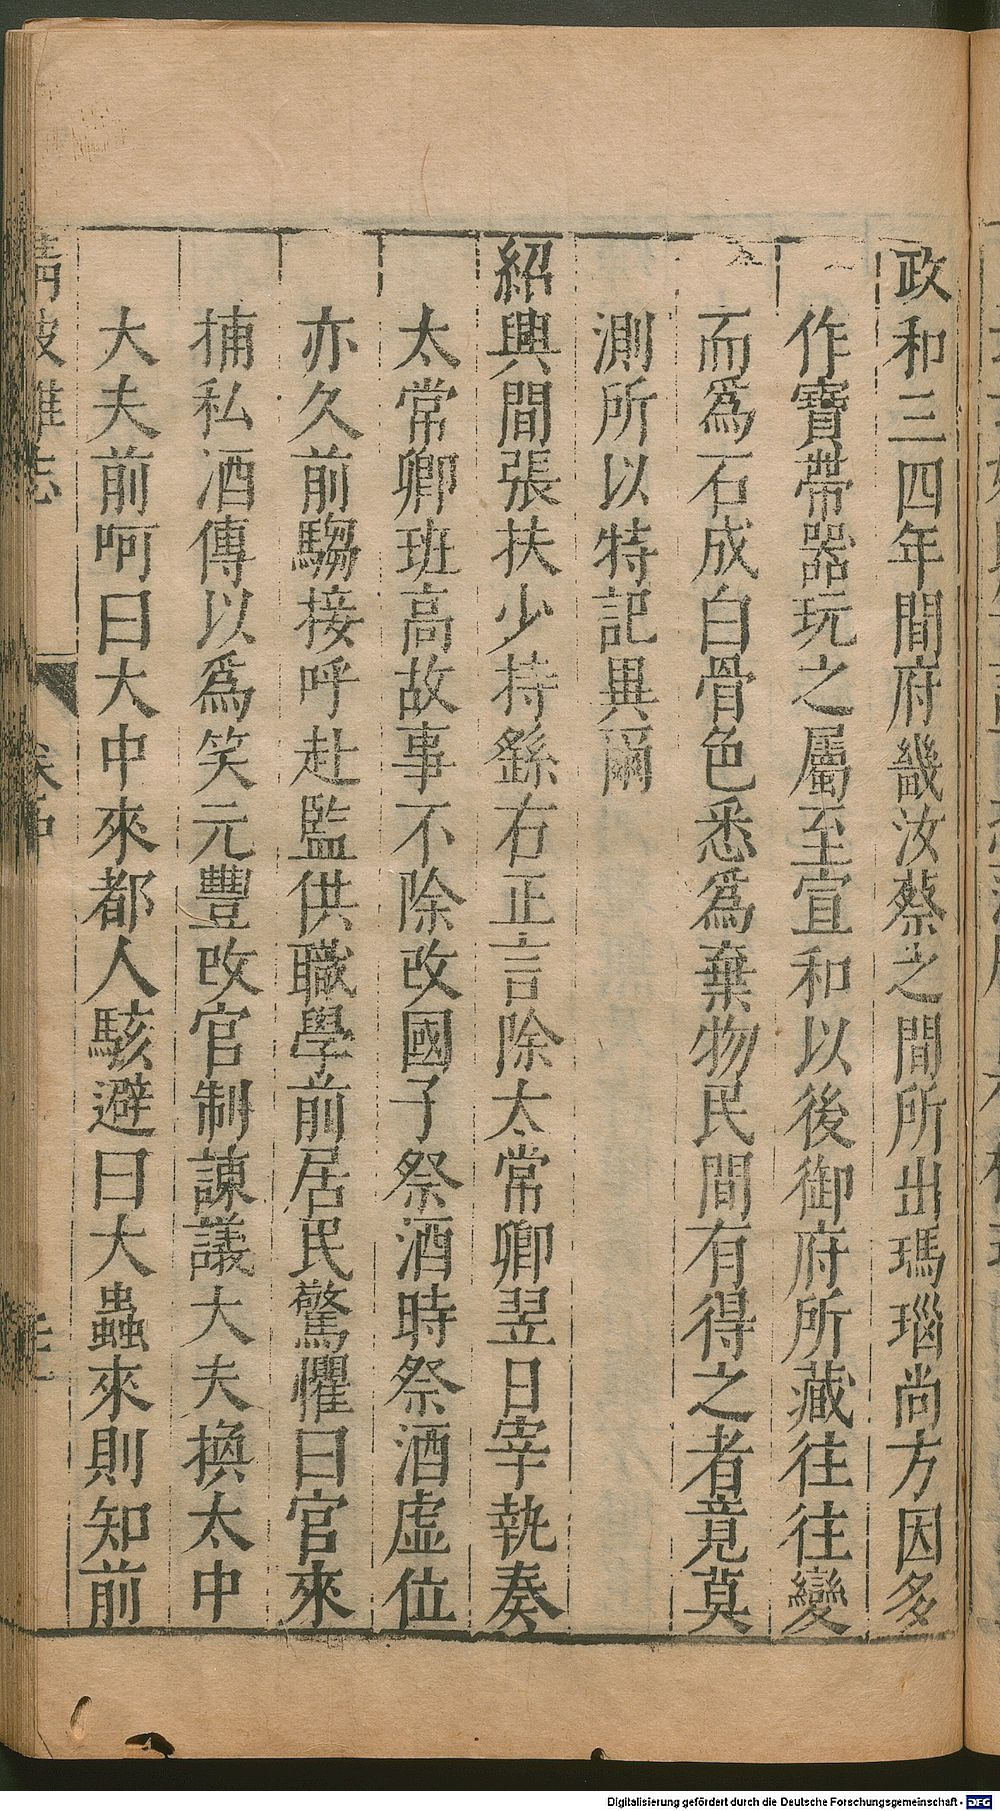 政和三四年間府畿汝蔡之間所出瑪瑙尚方因多
作寶帶器玩之屬至宣和以後御府所藏往往變
而爲石成白骨色悉爲棄物民間有得之者竟莫
測所以特記異爾
紹興間張扶少持繇右正言除太常卿翌日宰執奏
太常卿班高故事不除改國子祭酒時祭酒虛位
亦久前騶接呼赴監供職學前居民驚懼曰官來
捕私酒傳以爲笑元豐改官制諫議大夫換太中
大夫前呵曰大中來都人駭避曰大蟲來則知前
Digitalisierung gefördert durch die Deutsche Forschungsgemeinschaft - DFG